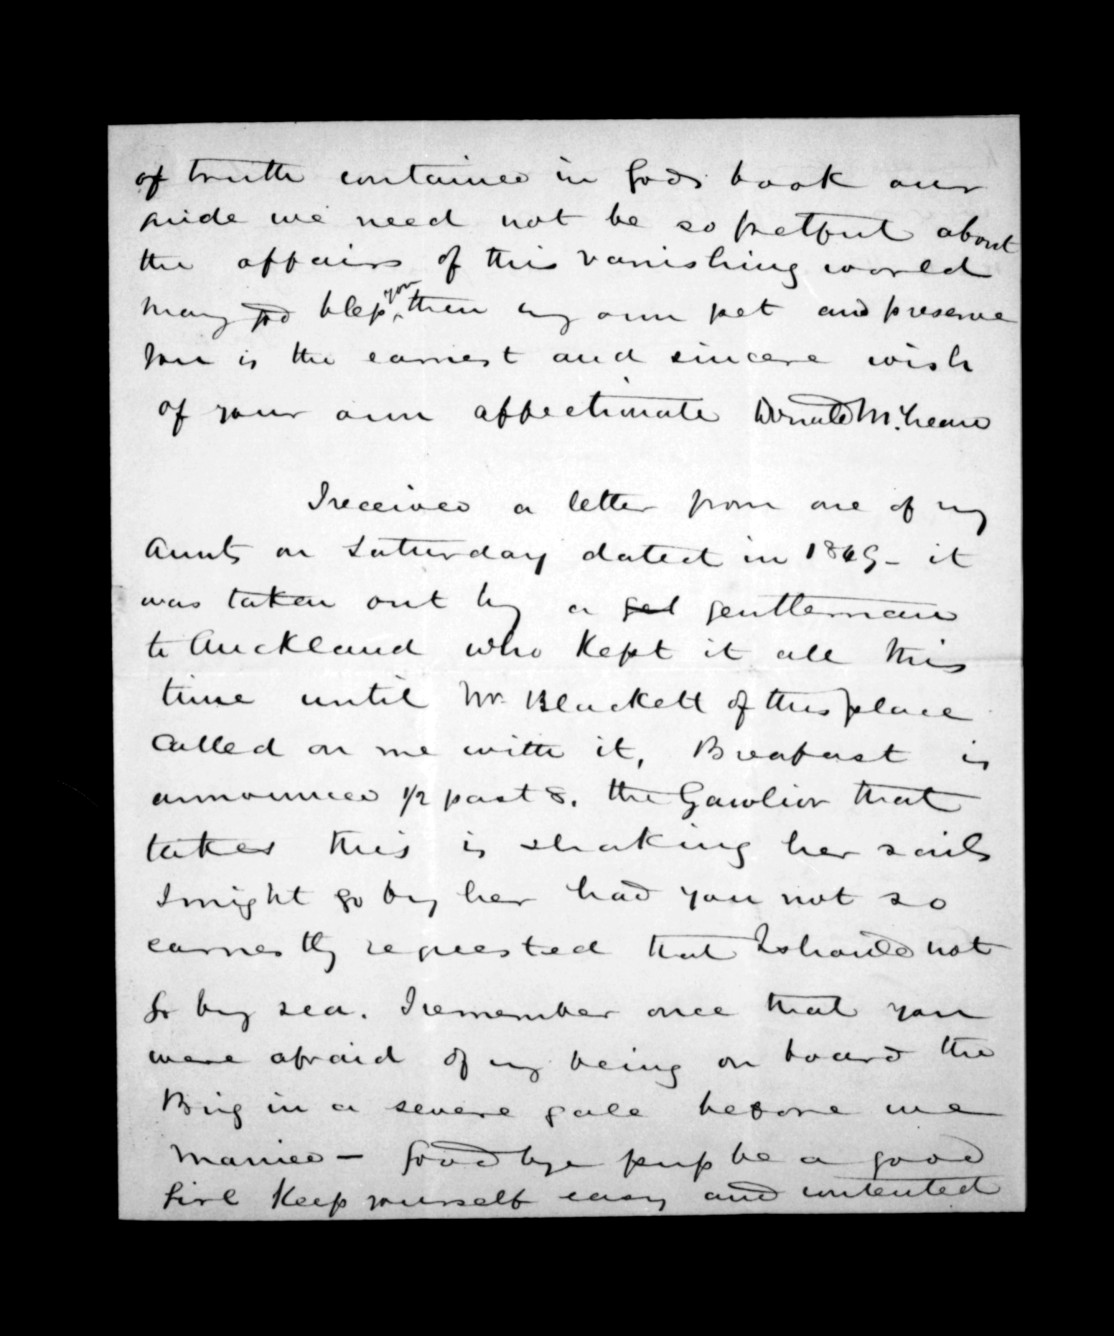 of truth contained in Gods book our
guide we need not be so fretful about
the affairs of this vanishing world
may God bless you then my own pet and preserve
you is the earnest and sincere wish
of your own affectionate Donald McLean
I received a letter from one of my
Aunts on Saturday dated in 1849 - it
was taken out by a gel gentleman
to Auckland who kept it all this
time until Mr. Blackett of this place
called on me with it, Breafast is
announced 1/2 past 8. the that
takes this is shaking her sails
I might go by her had you not so
earnestly requested that I should not
go by sea. I remember once that you
were afraid of my being on board the
Brig in a severe gale before we
Married - Good bye be a good
Girl Keep yourself easy and contented